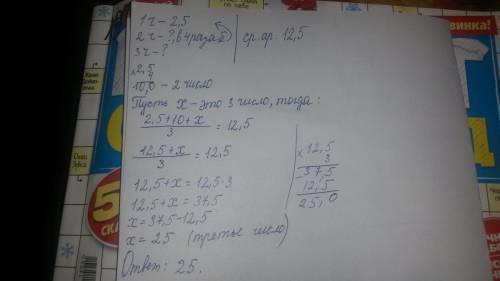 1 ч – 2,5
2 ч – ?, в 4 раза б
3 ч – ?
ср. ар. 12,5
× 2,5
4
10,0 – 2 число
Пусть x – это 3 число, тогда:
2,5+10+x
3
= 12,5
12,5+x
3
= 12,5
12,5+x = 12,5·3
12,5+x = 37,5
x = 37,5-12,5
x = 25 (третье число)
× 12,5
3
- 37,5
12,5
25,0
Ответ: 25.
5
СКА